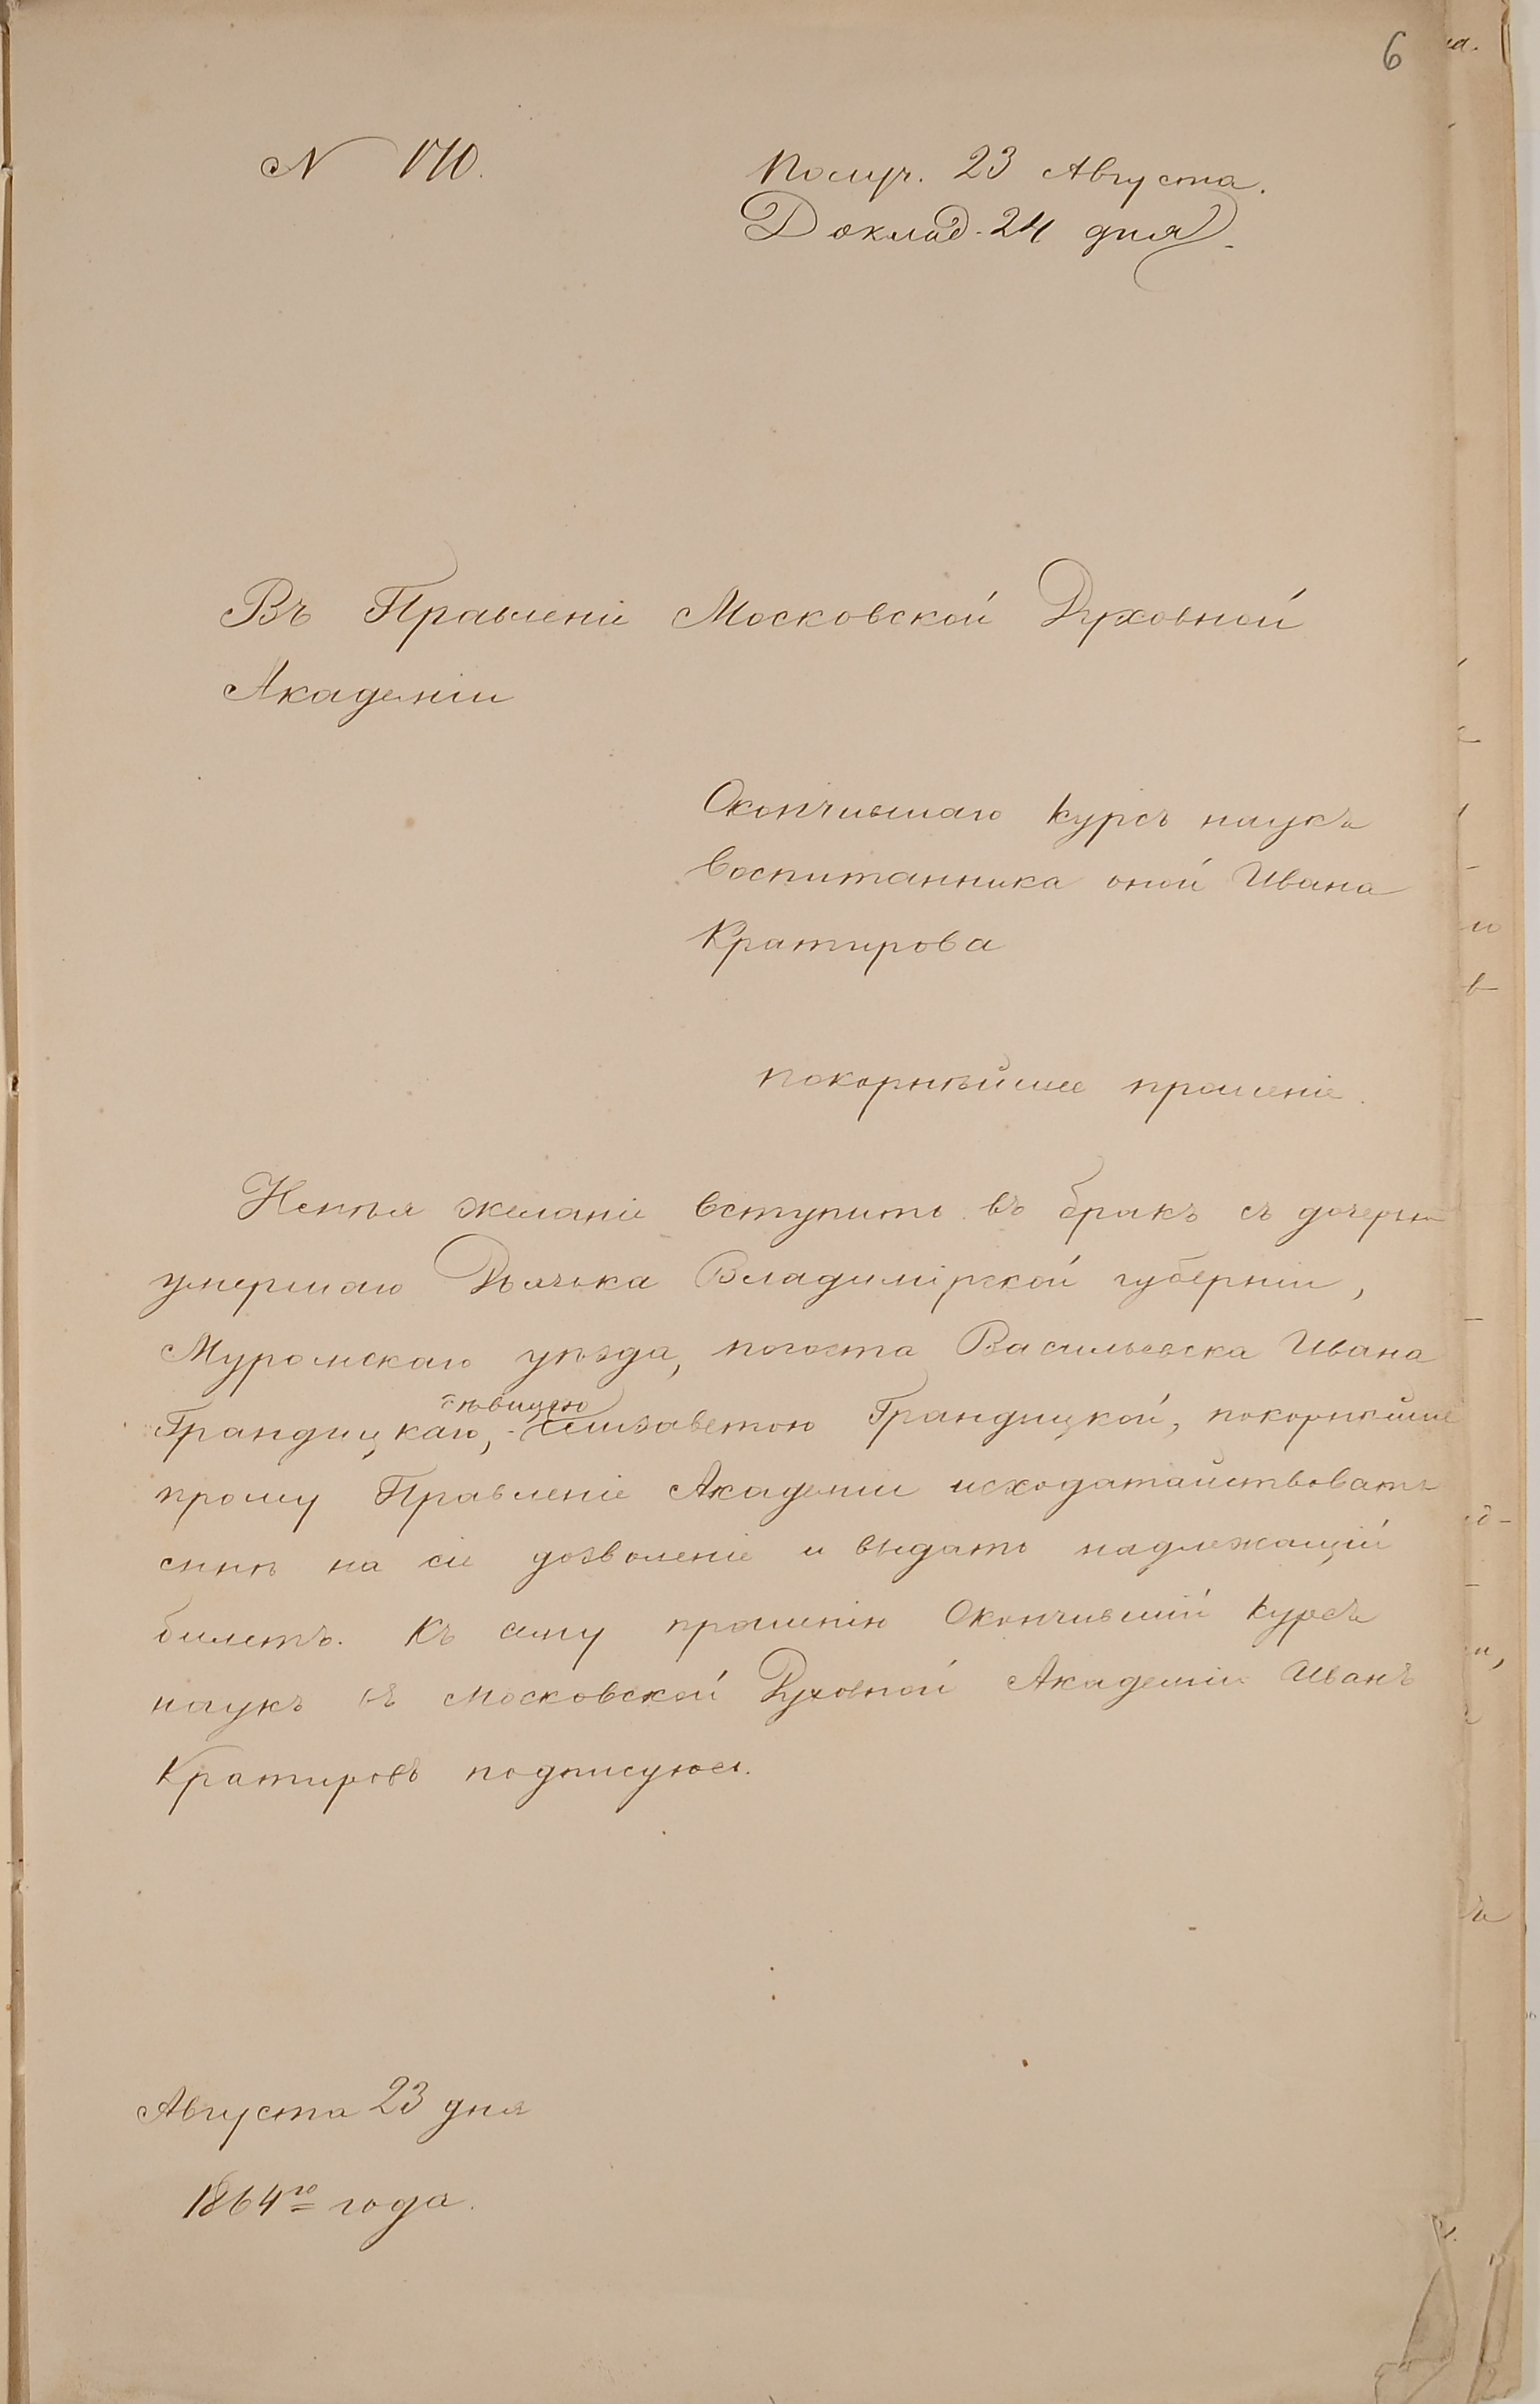 6
N 170.
Получ. 23 Августа.
Доклад. 24 дня.
Въ Правленіе Московской Духовной
Академіи
Окончившаго курсъ наукъ
воспитанника оной Ивана
Кратирова
покорнѣйшее прошеніе.
Имѣя желаніе вступить въ бракъ съ дочерью
умершаго Дьячька Владимірской губерніи,
Муромскаго уѣзда, погоста Васильевска Ивана
дѣвицею
Грандицкаго, Елизаветою Грандицкой, покорнѣйше
прошу Правленіе Академіи исходатайствовать
мнѣ на сіе дозволеніе и выдать надлежащій
билетъ. Къ сему прошенію Окончившій курсъ
наукъ въ Московской Духовной Академіи Иванъ
Кратировъ подписуюсь.
Августа 23 дня
1864го года.